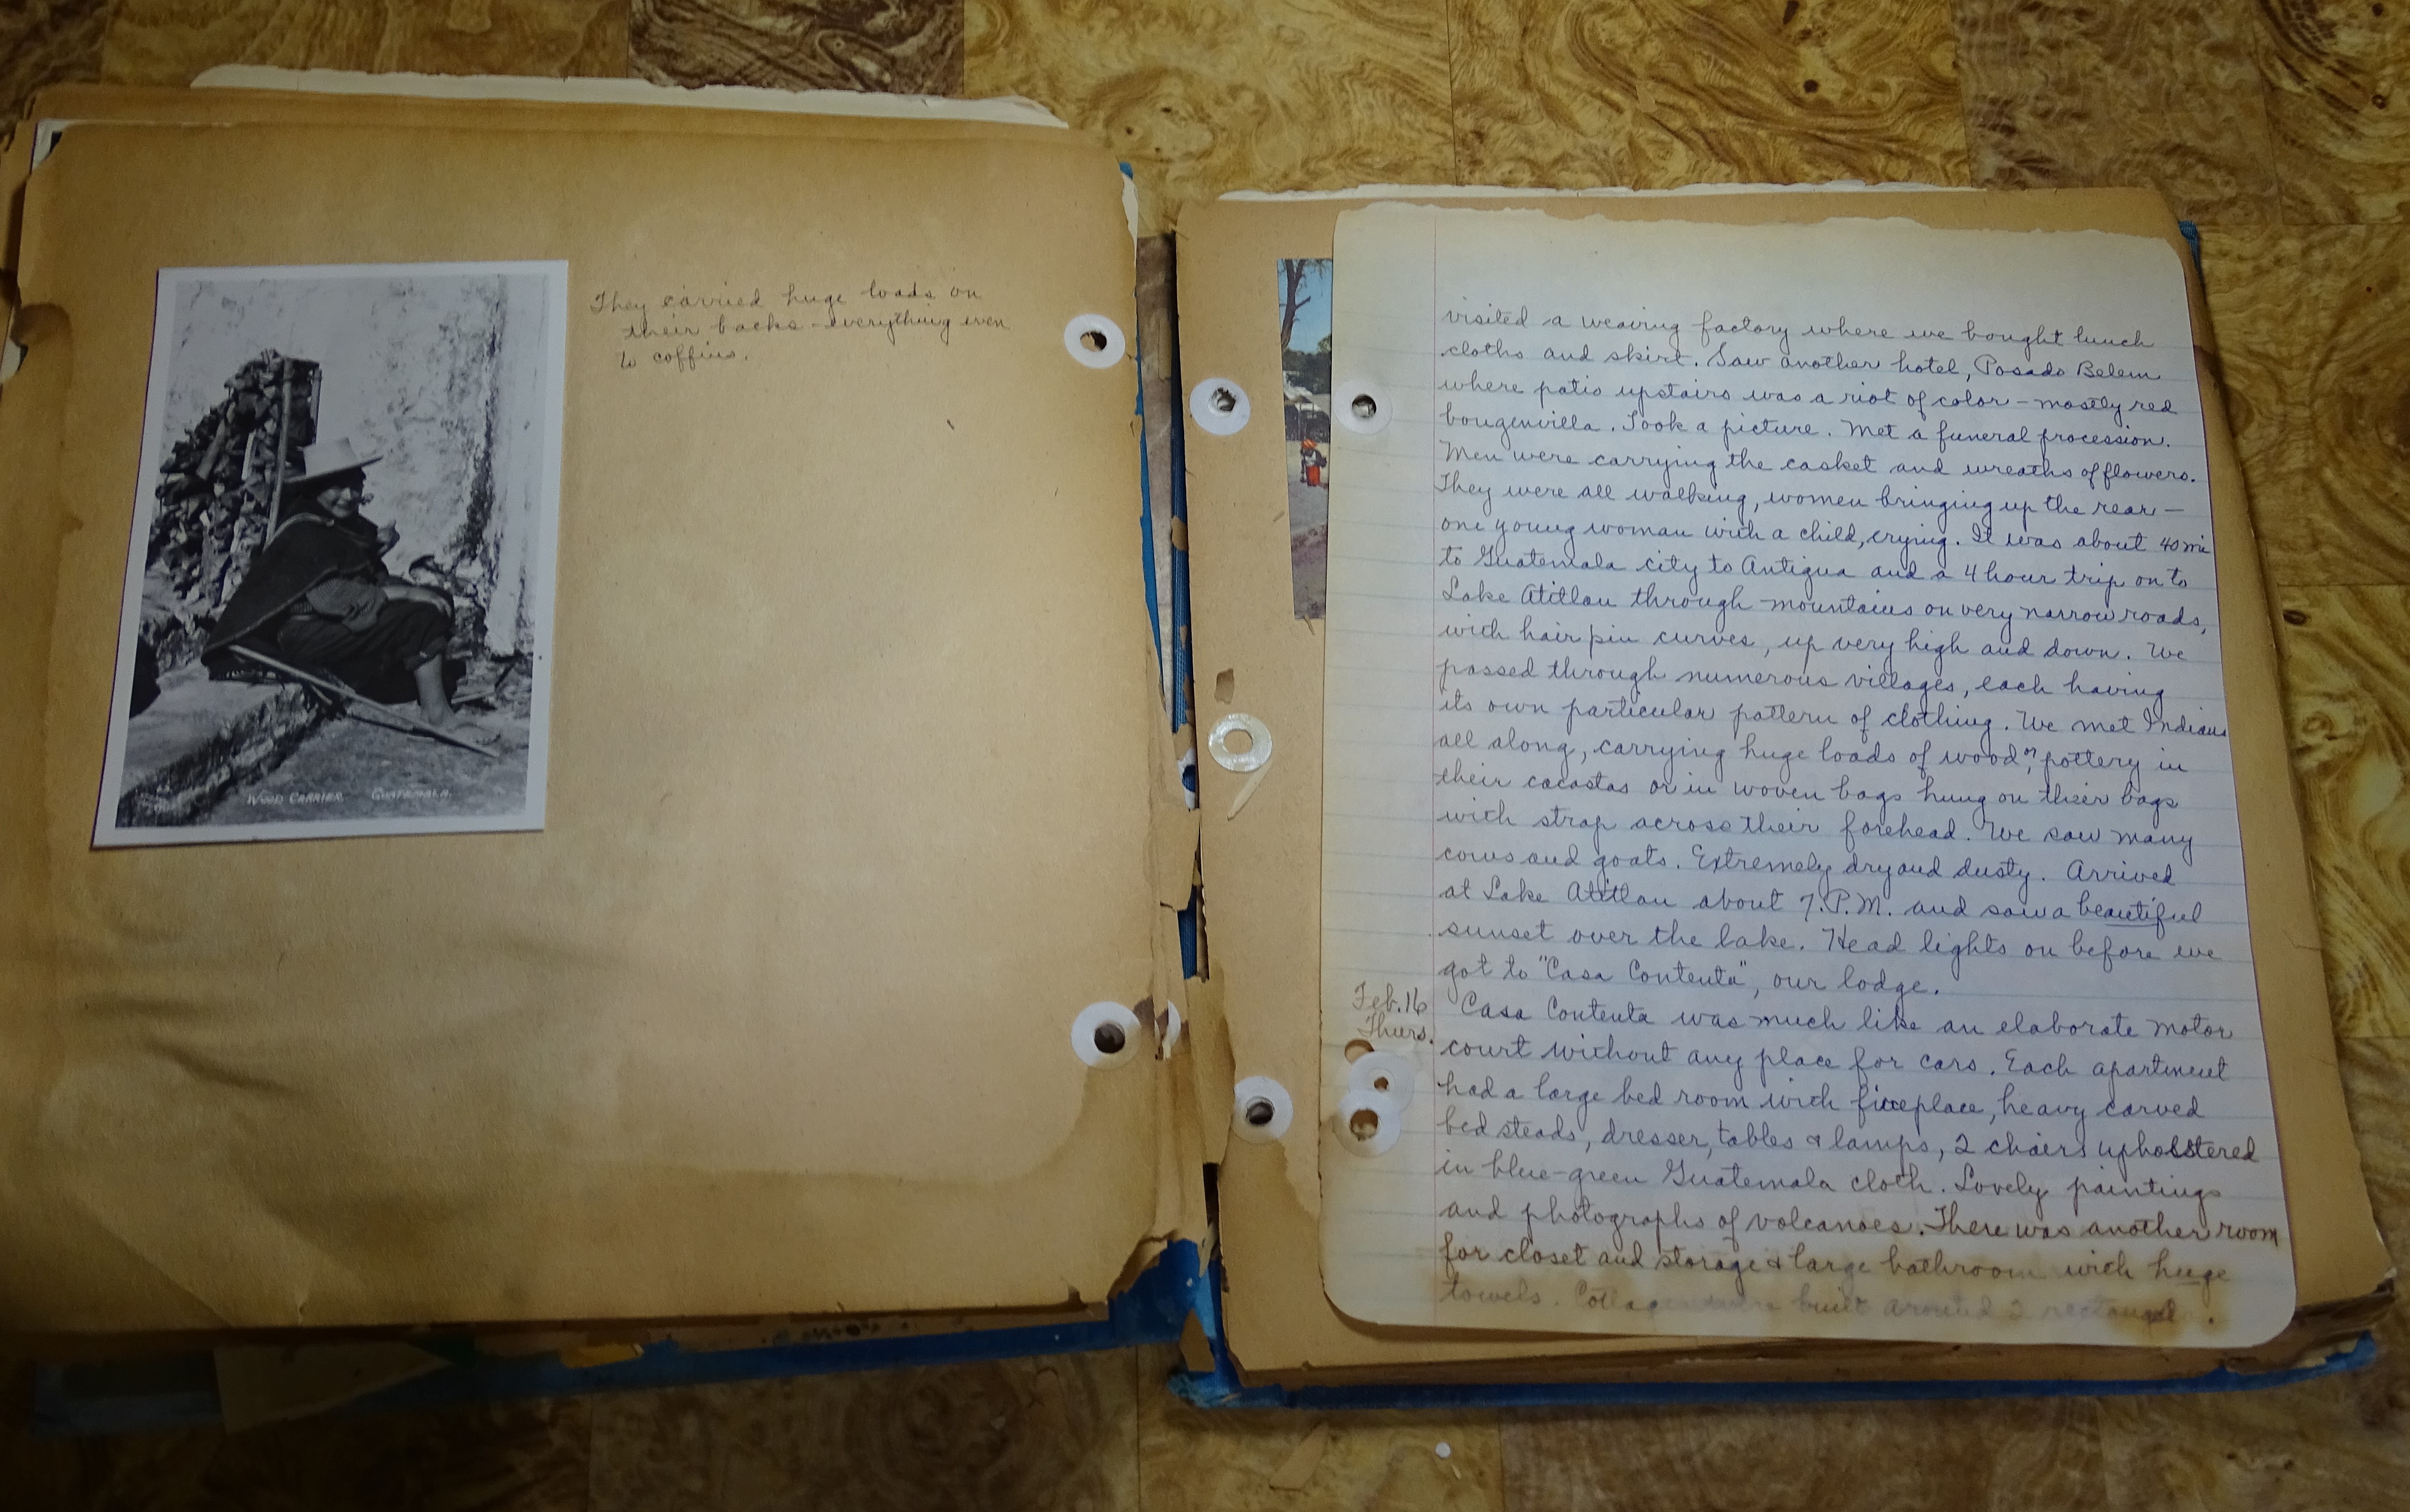 They carried huge loads on
their backs - everything even
to coffins.
WOOD CARRIER GUATEMALA.
visited a weaving factory where we bought lunch
cloths and skirt. Saw another hotel, Posado Belem
where patio upstairs was a riot of color - mostly red
bougenvilla. Took a picture. Met a funeral procession.
Men were carrying the casket and wreaths of flowers.
They were all walking, women bringing up the rear -
one young woman with a child, crying. It was about 40 mi
to Guatemala city to Antigua and a 4 hour trip on to
Lake Atitlan through mountains on very narrow roads,
with hair pin curves, up very high and down. We
passed through numerous villages, each having
its own particular pattern of clothing. We met Indians
all along, carrying huge loads of wood, or pottery in
their cacastas or in woven bags hung on their bags
with strap across their forehead. We saw many
cows and goats. Extremely dry and dusty. Arrived
at Lake Atitlan about 7. P.M. and saw a beautiful
sunset over the lake. Head lights on before we
got to "Casa Contenta", our lodge.
Feb. 16
Thurs.
Casa Contenta was much like an elaborate motor
court without any place for cars. Each apartment
had a large bed room with fireplace, heavy carved
bed steads, dresser, tables & lamps, 2 chairs upholstered
in blue-green Guatemala cloth. Lovely paintings
and photographs of volcanoes. There was another room
for closet and storage & large bathroom with huge
towels. built around 2